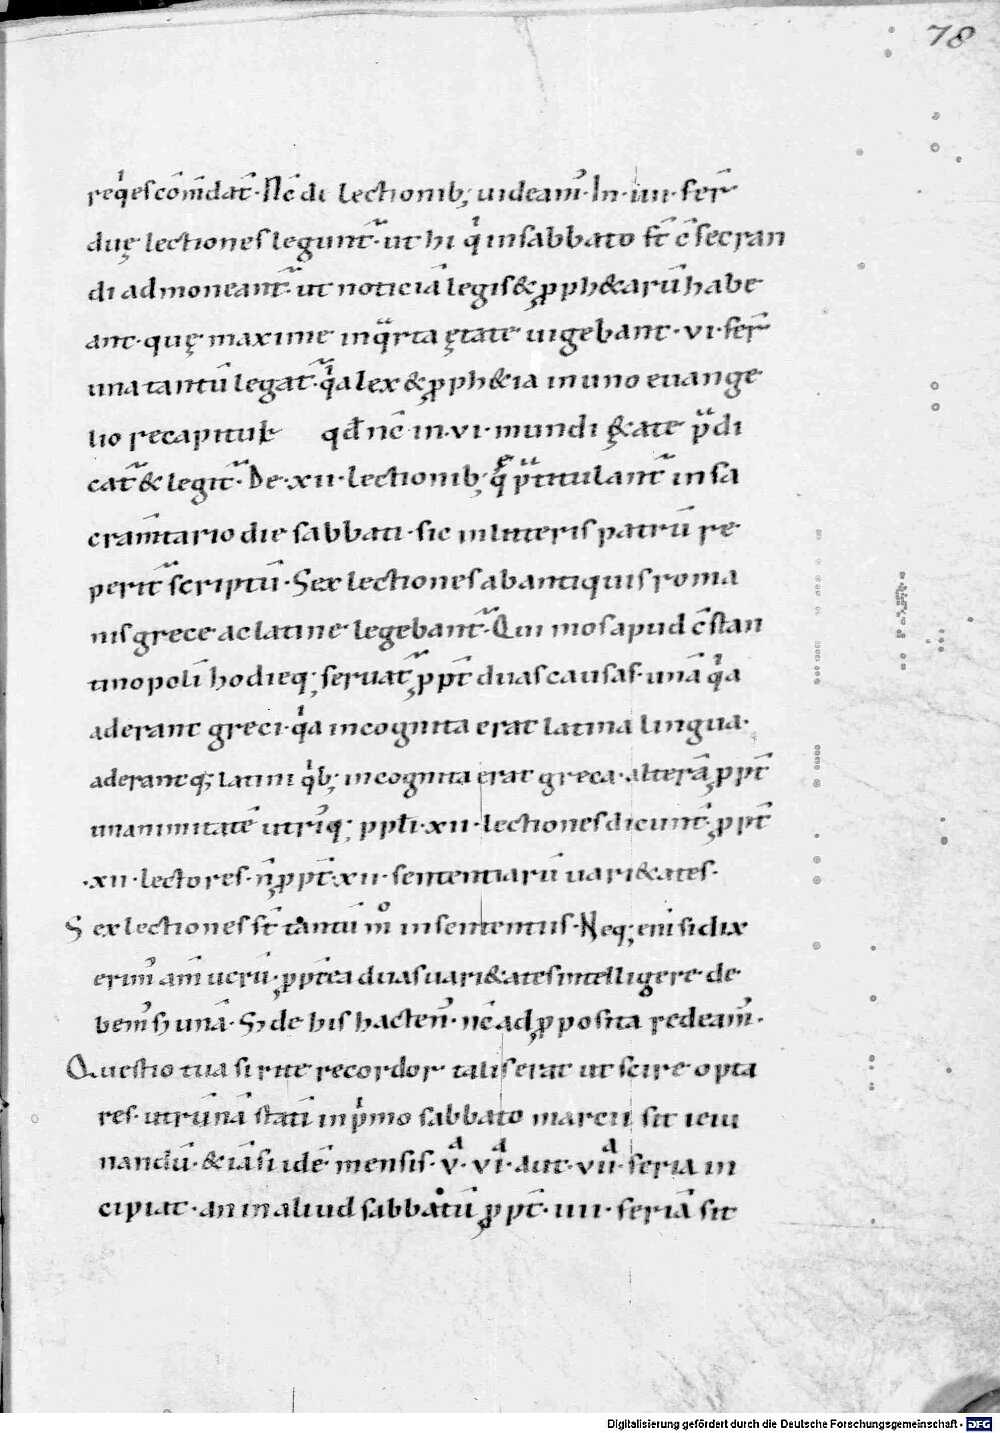 78
reqͥescōm̄dat̄· Nc̄ di lectionib; uideam᷒· In· iiii· fer̄
duę lectiones legunt᷑· ut hi qͥ in sabbato st̄ c̄secran
di admoneant᷑· ut noticiā legis & ꝓph&arū habe
ant· quę maxime in qͣrta ętate uigebant· vi· fer̄
una tantū legat᷑· qͥa lex & ꝓph&ia in uno euange
lio recapitul̄ qđ nc̄ in· vi· mundi &ate p̄di
cat᷑ & legit᷑· De· xii· lectionib; q̄ p̄titulant᷑ in sa
cram̄tario die sabbati· sic in litteris patrū re
perit᷑ scriptū· Sex lectiones ab antiquis roma
nis grece ac latine legebant᷑· Qui mos apud c̄stan
tinopolī hodieq; seruat᷑ ꝓpt̄ duas causas· unā qͥa
aderant greci· qͥa incognita erat latina lingua·
aderantq; latini qͥb; incognita erat greca· alterā ꝓpt̄
unanimitatē utriꝰq; ppl̄i· xii· lectiones dicunt᷑· ꝓpt̄
·xii· lectores· n̄ ꝓpt̄· xii· sententiarū uari&ates·
Sex lectiones st̄ tantū m̊ in sententiis· Neq; eni si dix
erim᷒ am̄ ucrū· ꝓpt̄ea duas uari&ates intelligere de
bem᷒ s; unā· S; de his hacten᷒· nc̄ ad ꝓposita redeam᷒·
Questio tua si rite recordor talis erat ut scire opta
res· utrūnā statī in pͥmo sabbato marcii sit ieiu
nandū· & iāsi idē mensis· vͣ· viͣ· aut· viiͣ· feria in
cipiat· an in aliud sabbatū ꝓpt̄· iiii· feriā sit
Digitalisierung gefördert durch die Deutsche Forschungsgemeinschaft - DFG